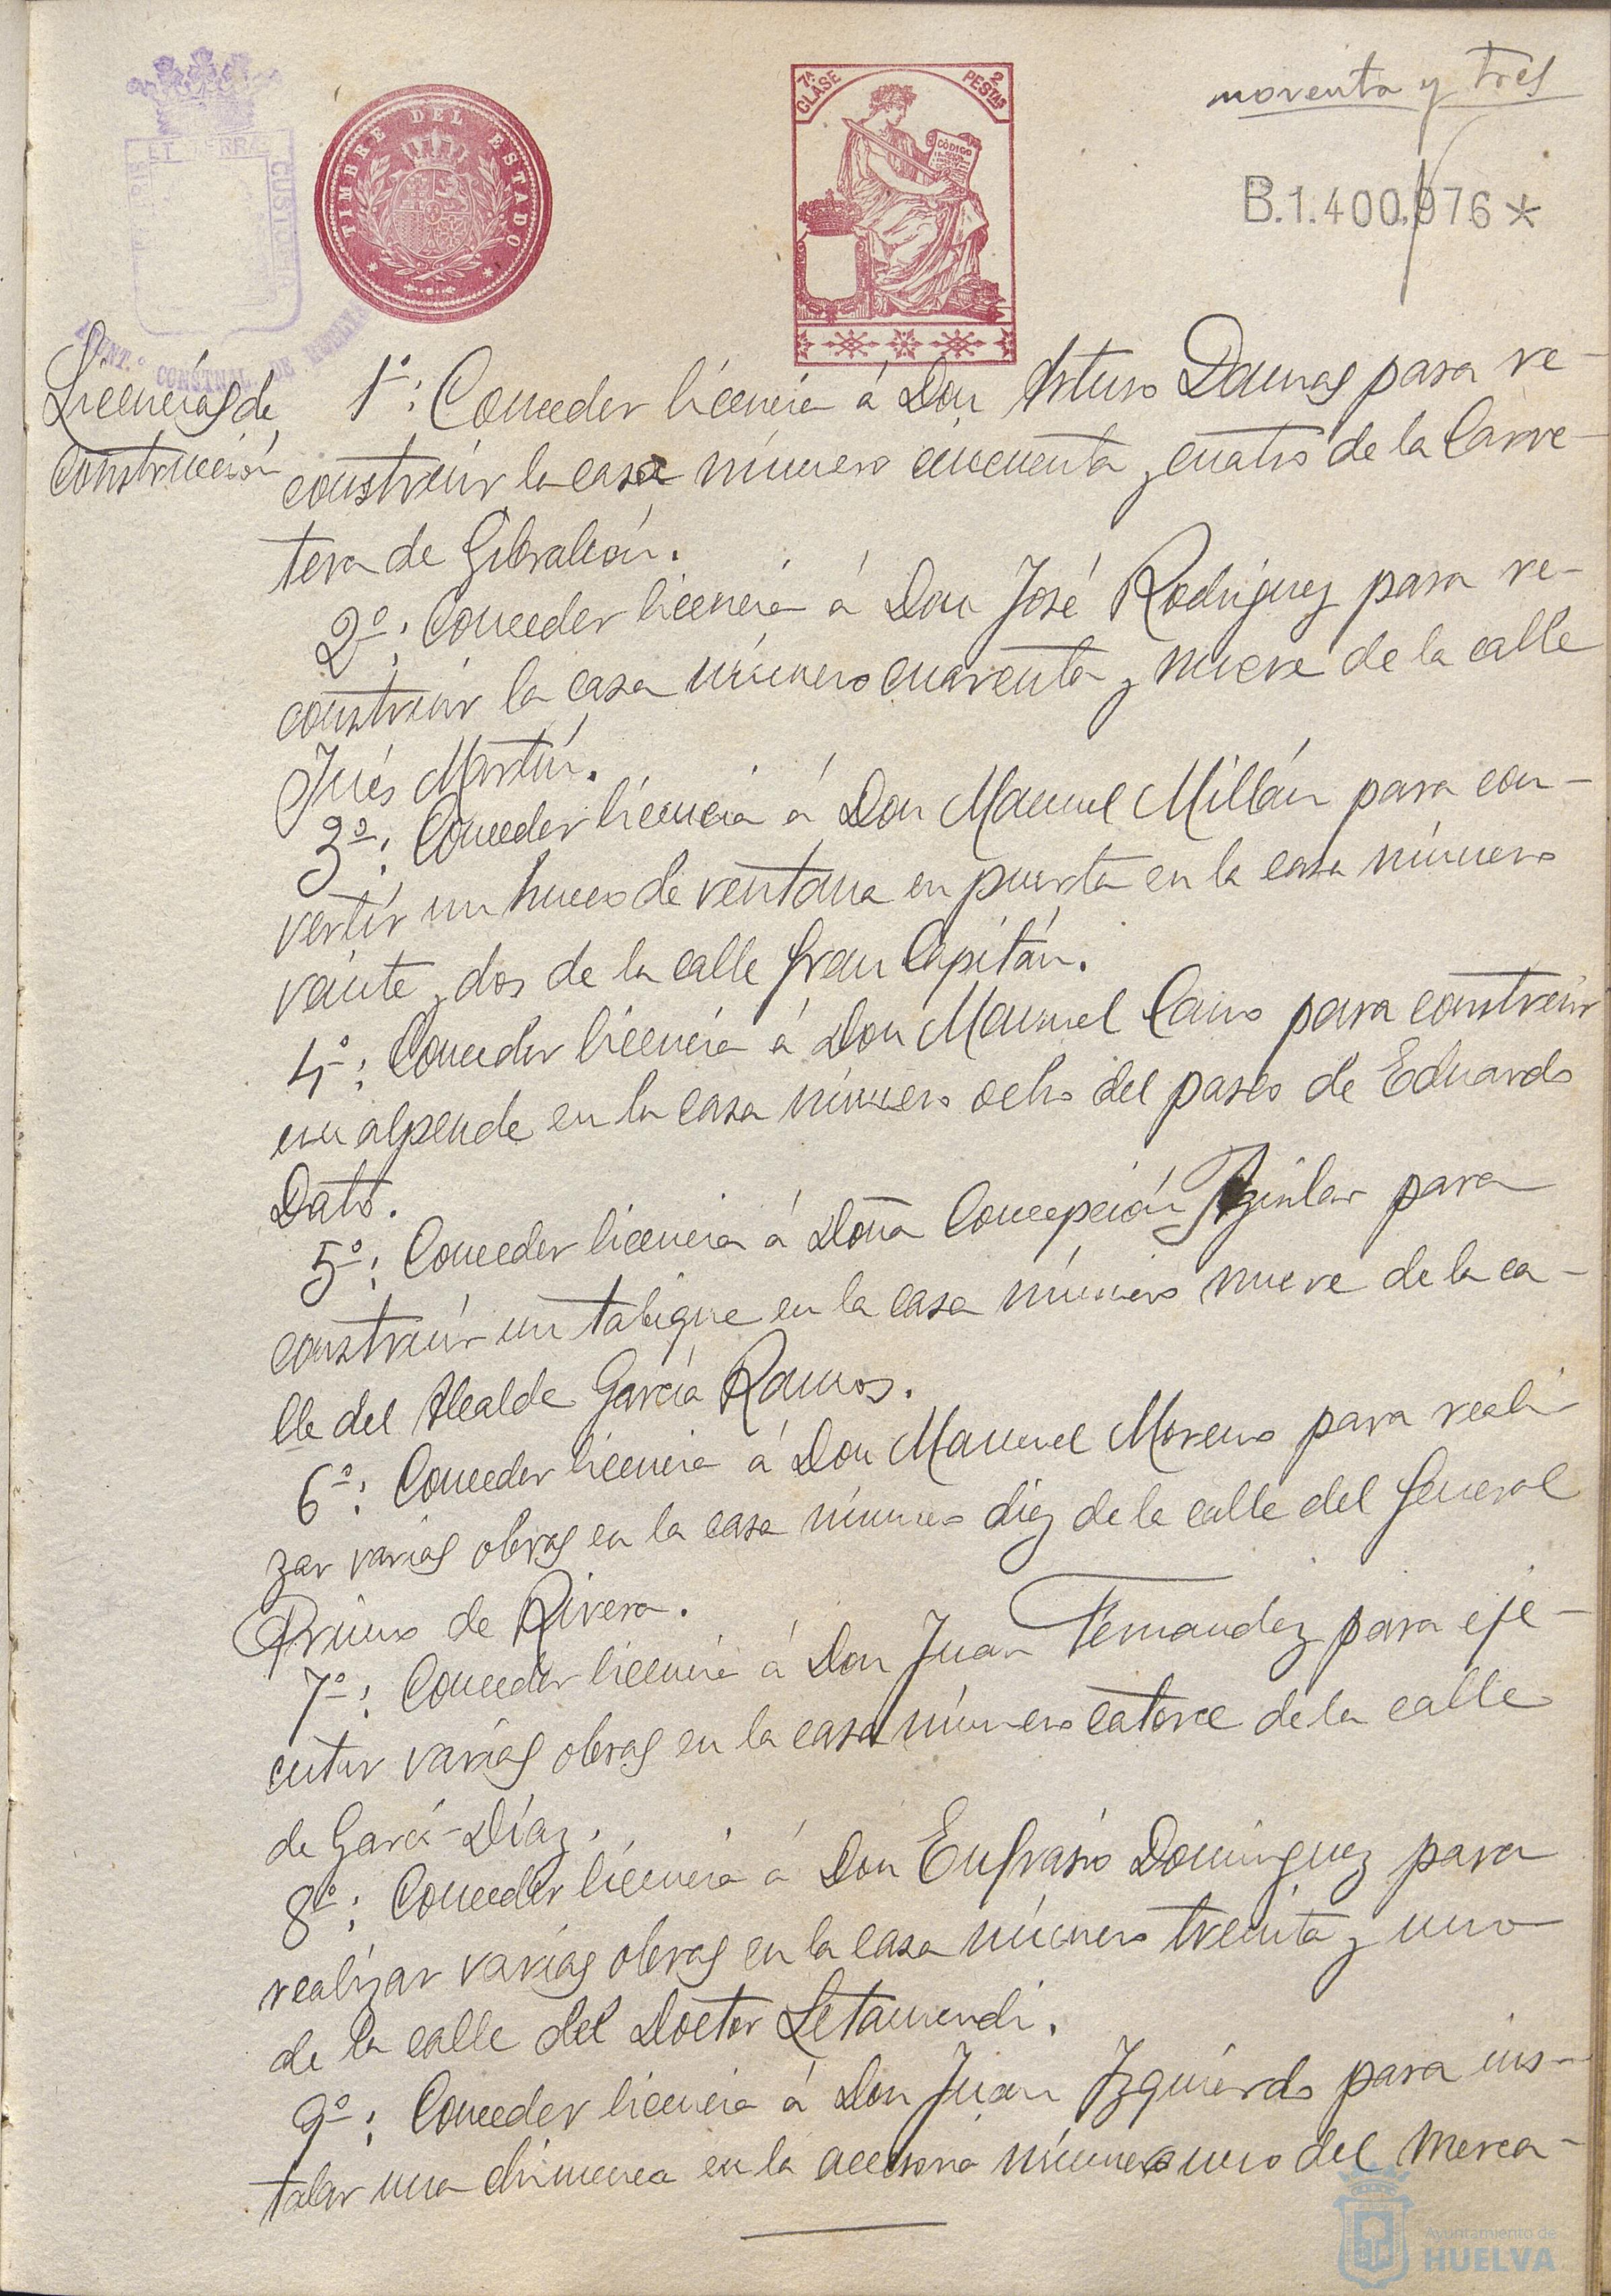 noventa y tres
PORTUS MARIS ET TERRAE CUSTODIA
AYUNT.º CONSTNAL. DE HUELVA
TIMBRE DEL ESTADO
7ª CLASE
2 PESTAS
CÓDIGO
B.1.400.976*
Licencias de
construcción
1º: Conceder licencia á Don Arturo Damas para re-
construir la casa número cincuenta y cuatro de la Carre-
tera de Gibraleón.
2º: Conceder licencia á Don José Rodríguez para re-
construir la casa número cuarenta y nueve de la calle
Inés Martín.
3º: Conceder licencia á Don Manuel Millán para con-
vertir un hueco de ventana en puerta en la casa número
veinte y dos de la calle Gran Capitán.
4º: Conceder licencia á Don Manuel Cano para construir
un alpende en la casa número ocho del paseo de Eduardo
Dato.
5º: Conceder licencia á Doña Concepción Aguilar para
construir un tabique en la casa número nueve de la ca-
lle del Alcalde García Ramos.
6º: Conceder licencia á Don Manuel Moreno para reali-
zar varias obras en la casa número diez de la calle del General
Primo de Rivera.
7º: Conceder licencia á Don Juan Fernandez para eje-
cutar varias obras en la casa número catorce de la calle
de Garci-Díaz.
8º: Conceder licencia á Don Eufrasio Dominguez para
realizar varias obras en la casa número treinta y uno
de la calle del Doctor Letamendi.
9º: Conceder licencia á Don Juan Izquierdo para ins-
talar una chimenea en la accesoria número uno del Merca-
Ayuntamiento de
HUELVA